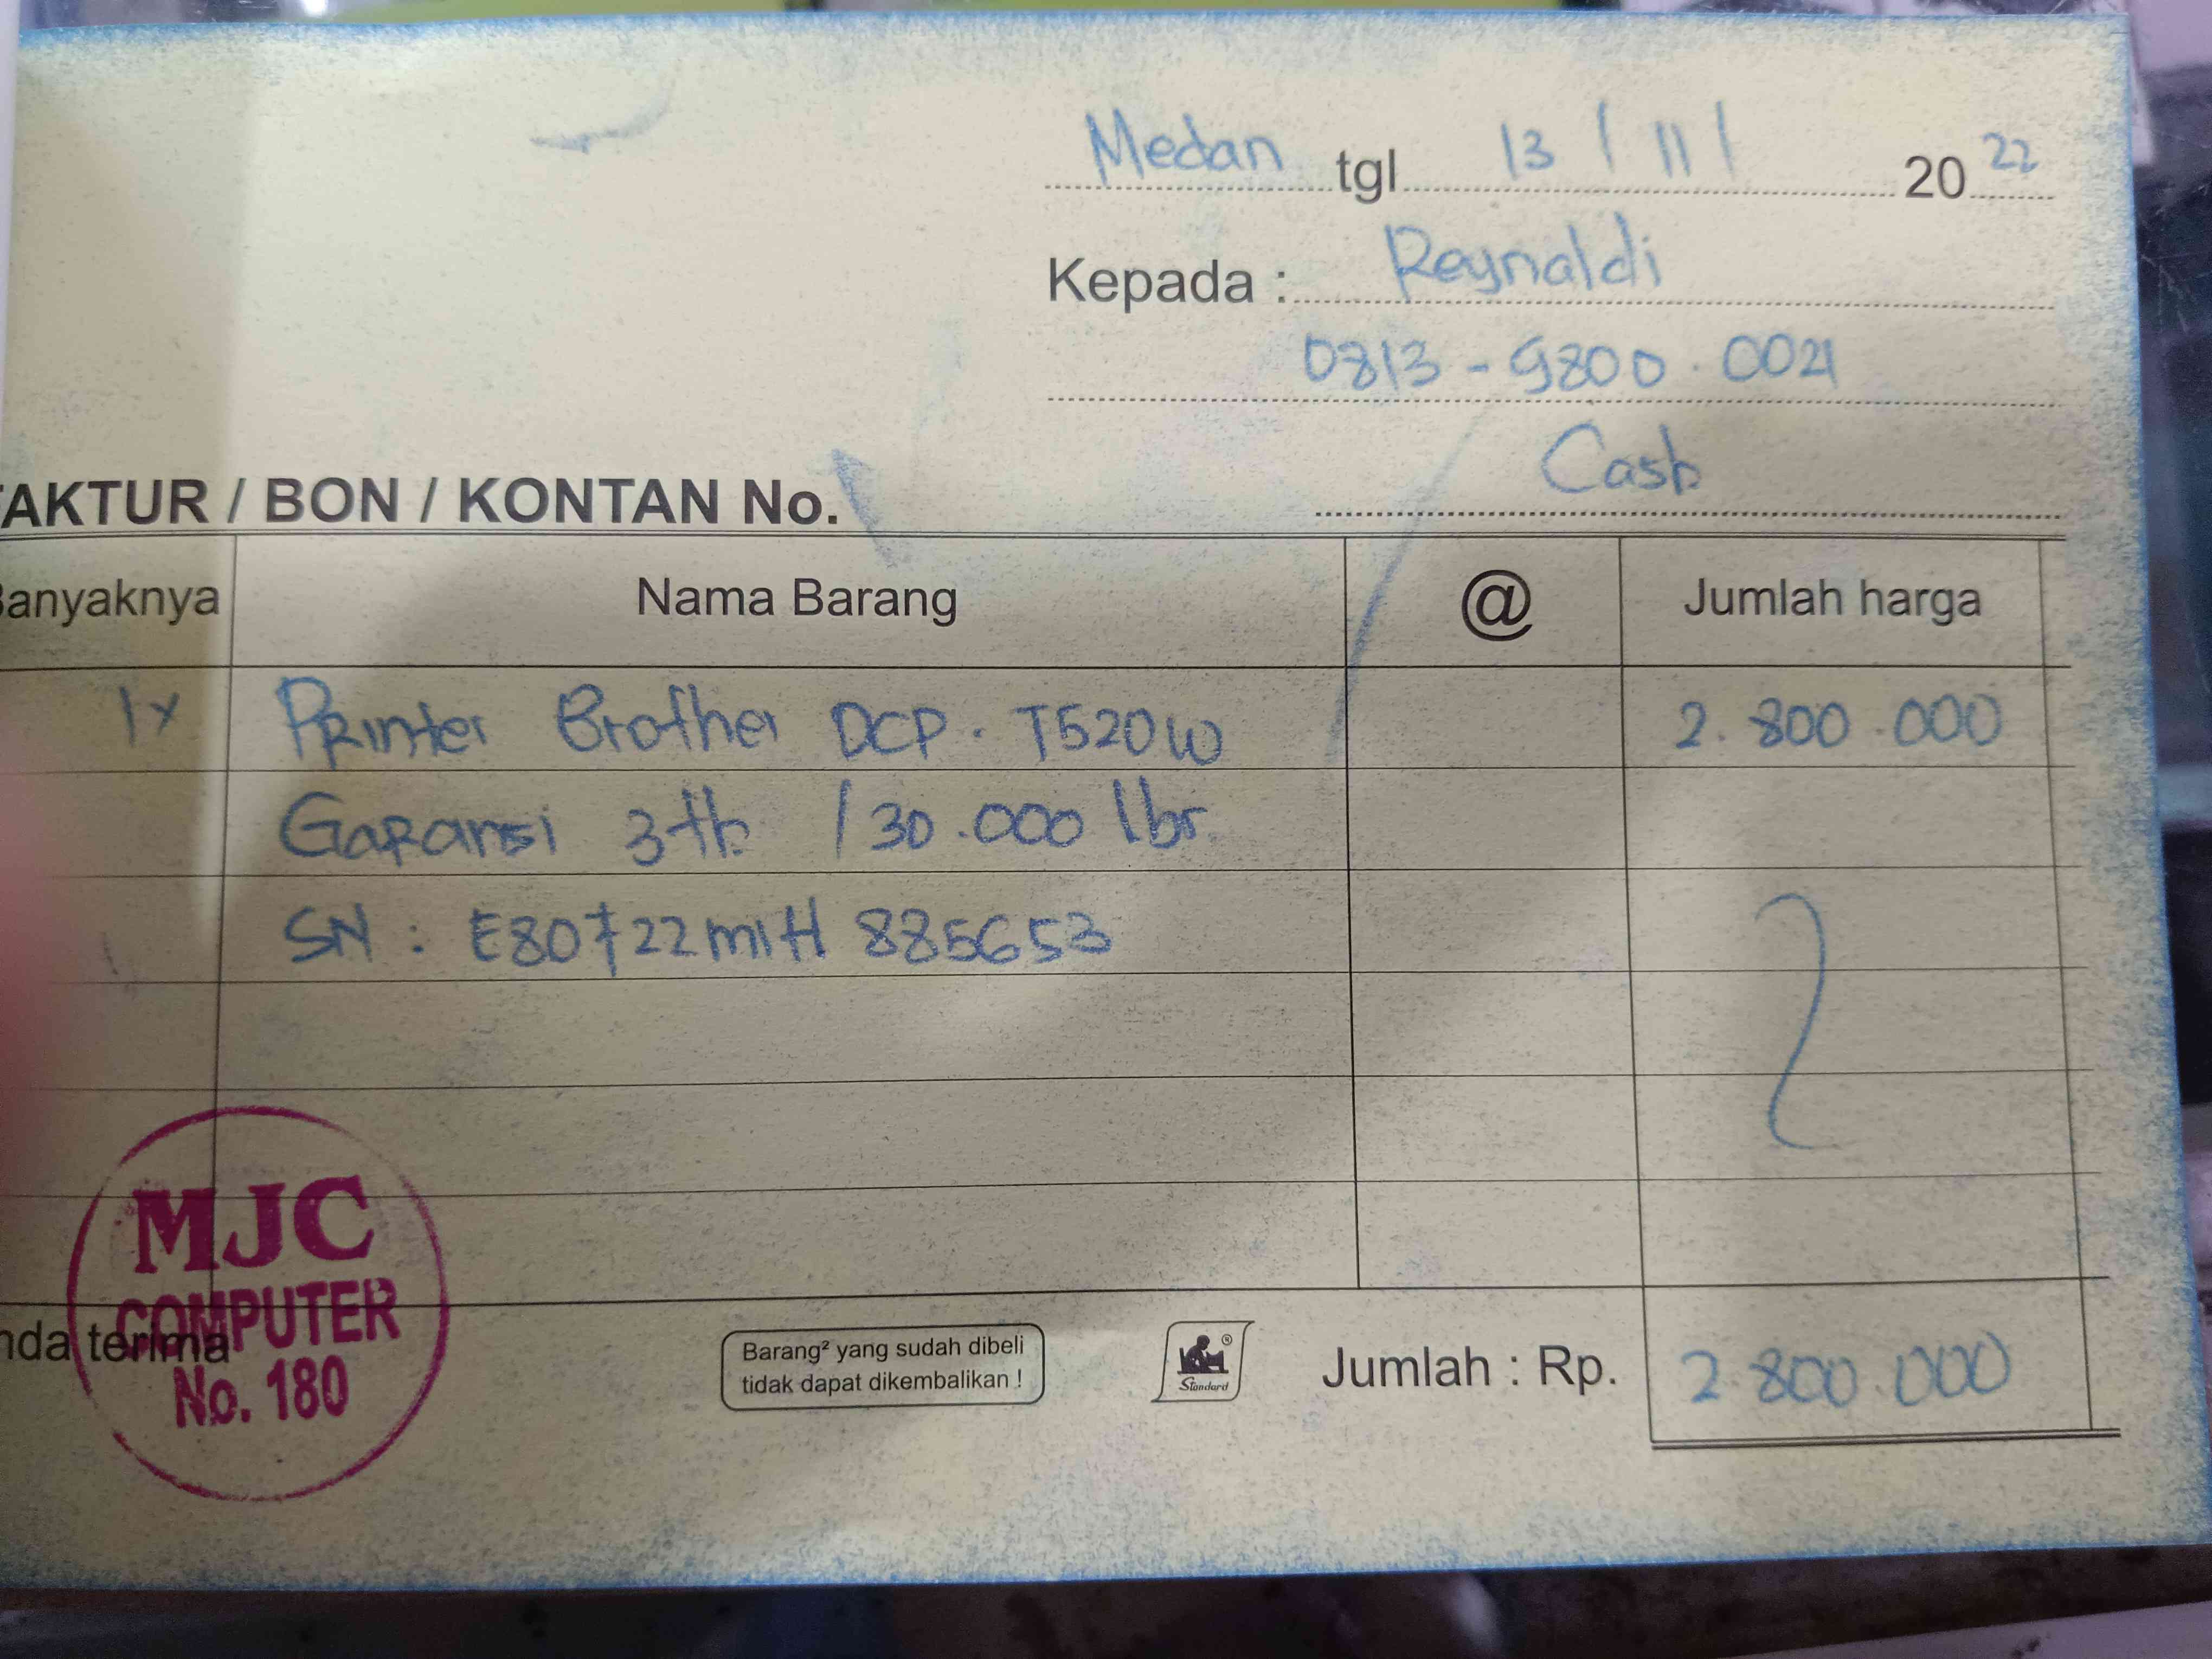 Medan tgl 13 / 11 / 20 22
Kepada : Reynaldi
0813 - 9800 . 0021
Cash
FAKTUR / BON / KONTAN No.
Banyaknya Nama Barang @ Jumlah harga
1x Printer Brother DCP . T520W 2.800.000
Garansi 3 th / 30.000 lbr.
SN : E80722M1H 885653
MJC
COMPUTER
No. 180
nda terima
Barang² yang sudah dibeli
tidak dapat dikembalikan !
Standard
Jumlah : Rp. 2.800.000